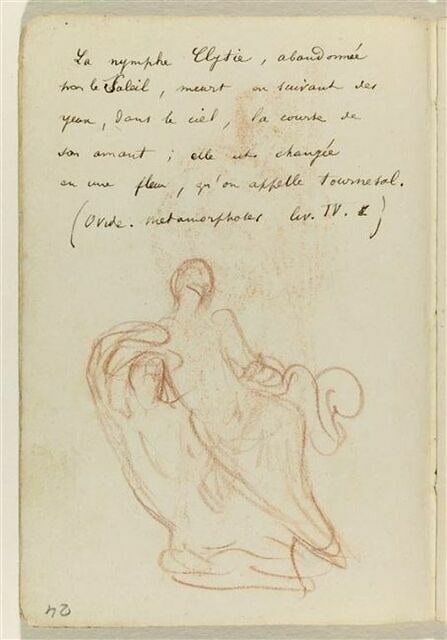 La nymphe Clytie, abandonnée
par le Soleil, meurt en suivant des
yeux, dans le ciel, la course de
son amant ; elle est changée
en une fleur, qu'on appelle tournesol.
(Ovide. métamorphoses liv. IV. )
42